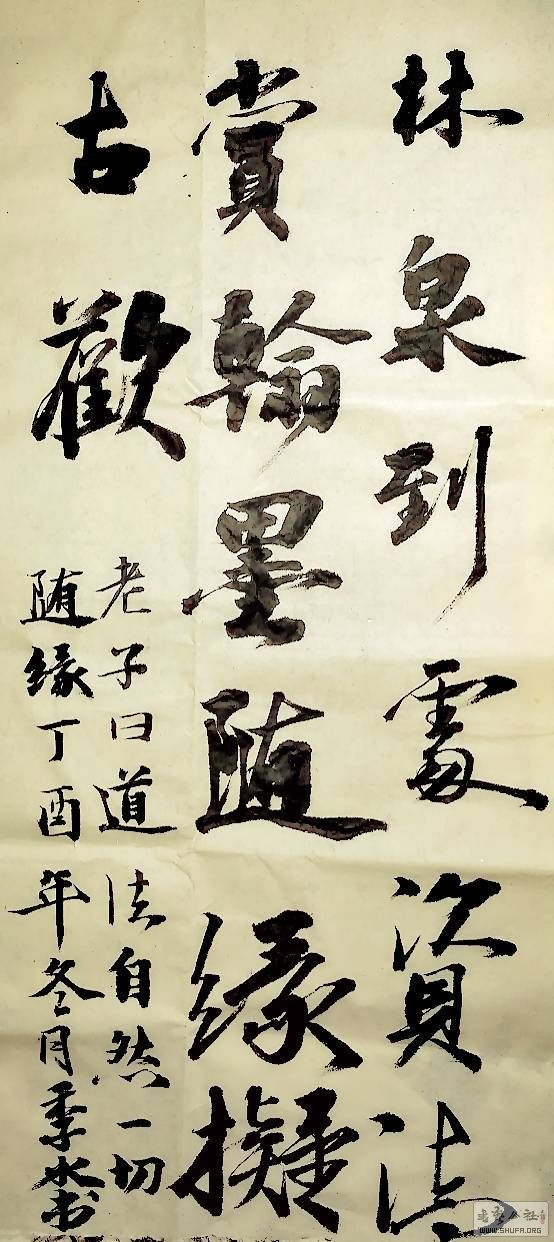 林泉到處資清
賞翰墨随缘擬
古歡
老子曰道法自然一切
随缘丁酉年冬月季水书
WWW.SHUFA.ORG